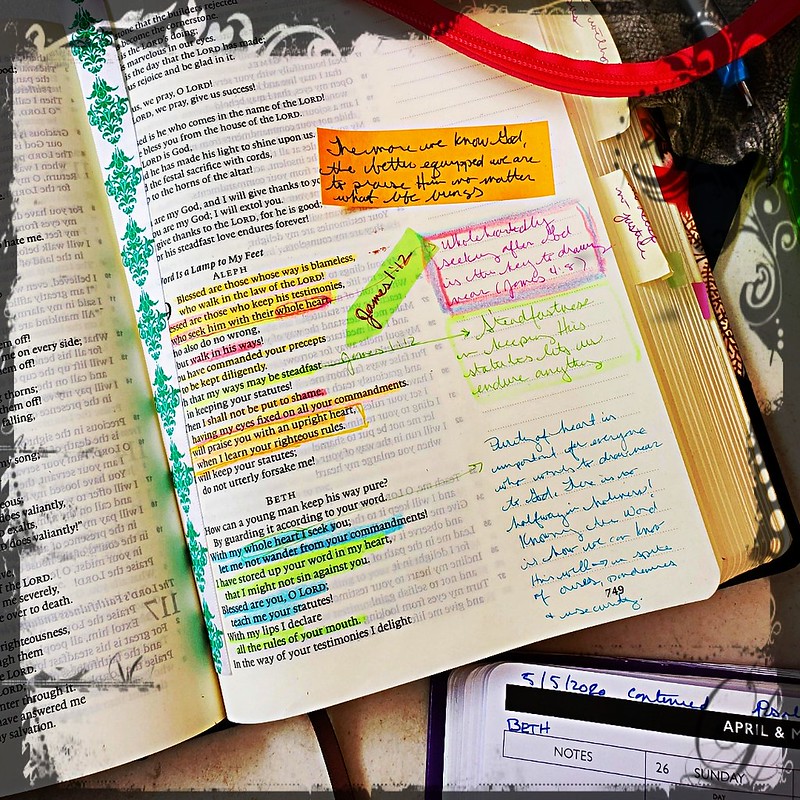 one that the builders rejected
become the cornerstone.
is the LORD's doing;
s marvelous in our eyes.
is the day that the LORD has made;
us rejoice and be glad in it.
us, we pray, O LORD!
LORD, we pray, give us success!
ed is he who comes in the name of the LORD!
bless you from the house of the LORD.
LORD is God,
d he has made his light to shine upon us.
d the festal sacrifice with cords,
p to the horns of the altar!
are my God, and I will give thanks to yo
ou are my God; I will extol you.
give thanks to the LORD, for he is good;
or his steadfast love endures forever!
Word Is a Lamp to My Feet
ALEPH
Blessed are those whose way is blameless,
who walk in the law of the LORD!
essed are those who keep his testimonies,
who seek him with their whole heart,
ho also do no wrong,
but walk in his ways!
ou have commanded your precepts
to be kept diligently.
h that my ways may be steadfast
in keeping your statutes!
hen I shall not be put to shame,
having my eyes fixed on all your commandments.
will praise you with an upright heart,
when I learn your righteous rules.
will keep your statutes;
do not utterly forsake me!
BETH
How can a young man keep his way pure?
By guarding it according to your word.
With my whole heart I seek you;
let me not wander from your commandments!
I have stored up your word in my heart,
that I might not sin against you.
Blessed are you, O LORD;
teach me your statutes!
With my lips I declare
all the rules of your mouth.
In the way of your testimonies I delight
The more we know God,
the better equipped we are
to praise Him no matter
what life brings
James 1:12
Wholeheartedly
seeking after God
is the key to drawing
near (James 4:8)
James 1:12
Steadfastness
in keeping His
statutes lets us
endure anything
Purity of heart is
important for everyone
who wants to draw near
to God. There is no
halfway in holiness!
Knowing the Word
is how we can know
His will in spite
of ourselves,
& insecurity.
749
hate me.
m off!
me on every side;
hem off!
thorns;
them off!
falling,
my song;
does valiantly,
exalts,
does valiantly!"
of the LORD.
me severely,
e over to death.
righteousness,
ugh them
LORD.
nter through it.
have answered me
y salvation.
5/5/2020 continued
APRIL & M
BETH
NOTES
26
SUNDAY
DAY